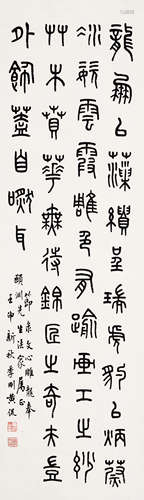 龍鳳以藻繢呈瑞虎豹以炳蔚
凝姿雲霞雕色有踰畫工之妙
艸木賁華無待錦匠之奇夫豈
外飾蓋自然耳
節錄文心雕龍奉
頤淵先生法家屬正
壬申新秋季剛黃侃